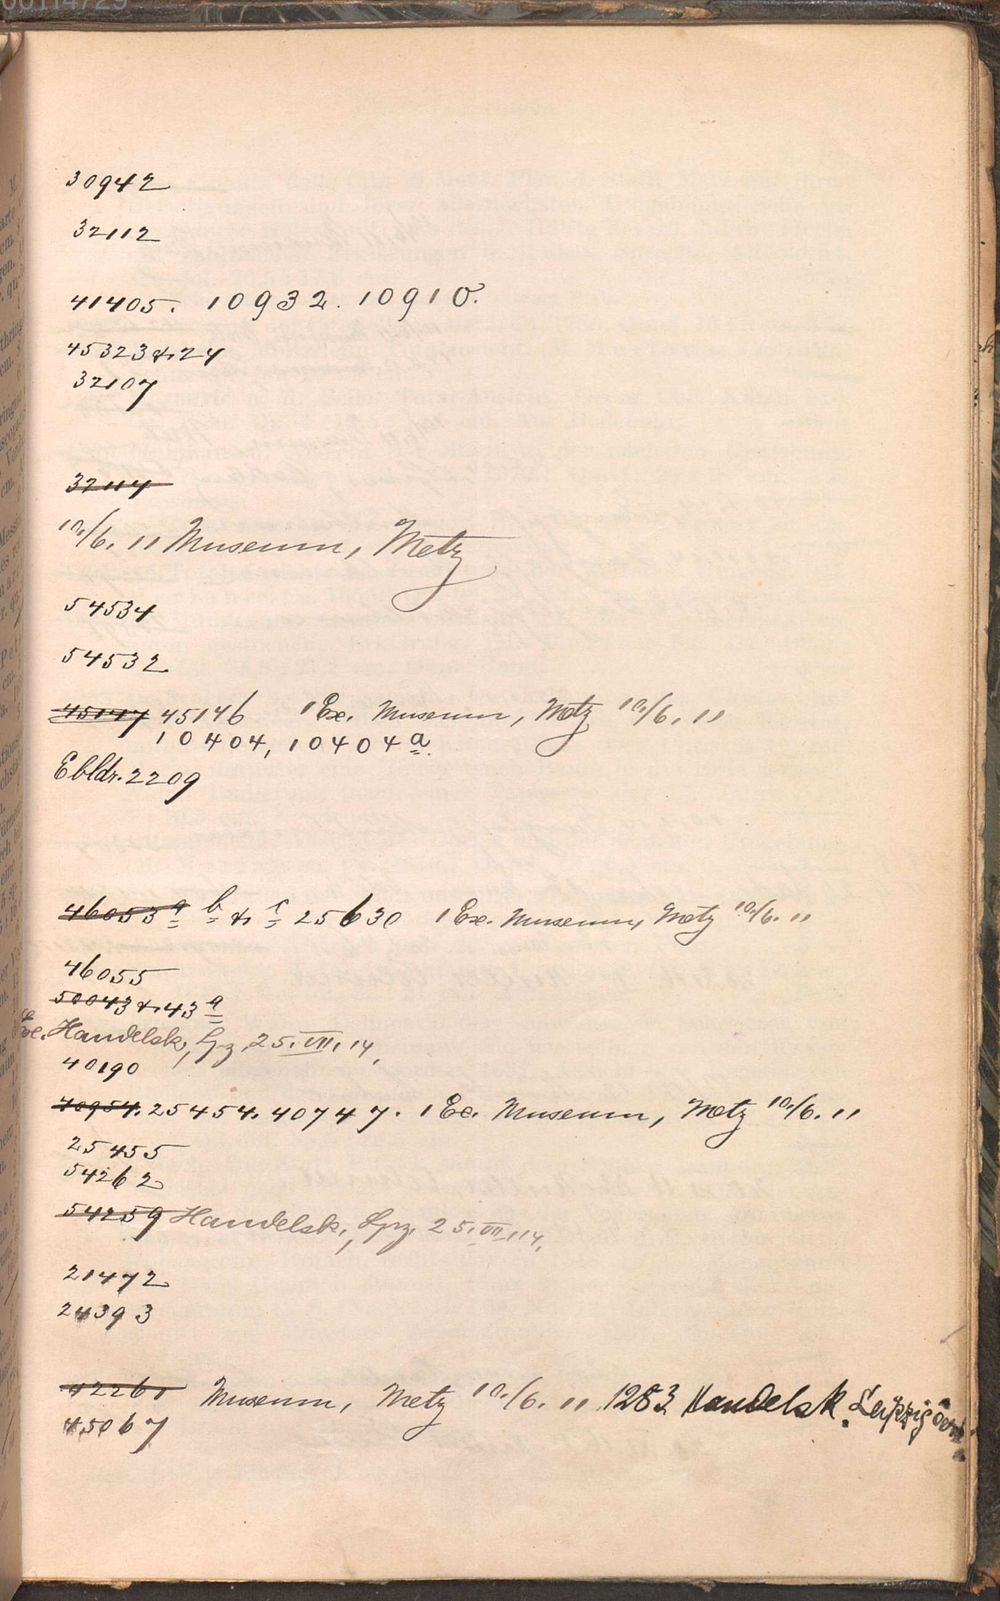 30942
32112
41405. 10932. 10910.
45323 & 24
32107
32114
10./6. 11 Museum, Metz
54534
54532
45147 45146 1 Ex. Museum, Metz 10./6. 11
10404, 10404a.
Ebldr. 2209
46053a b & c 25630 1 Ex. Museum, Metz 10./6. 11
46055
50043 & 43a
Ex. Handelsk, Lpz, 25. VII. 14.
40190
40954. 25454. 40747. 1 Ex. Museum, Metz 10./6. 11
25455
54262
54259 Handelsk., Lpz, 25. VII. 14.
21472
24393
42261 Museum, Metz 10./6. 11 1283 Handelsk. Leipzig
45067